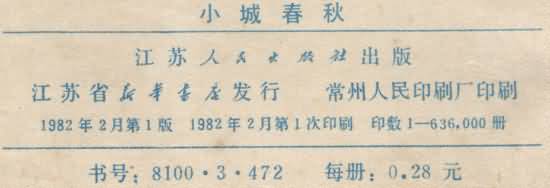 小城春秋
江苏人民出版社出版
江苏省新华书店发行 常州人民印刷厂印刷
1982年2月第1版 1982年2月第1次印刷 印数1—636,000册
书号：8100·3·472 每册：0.28元